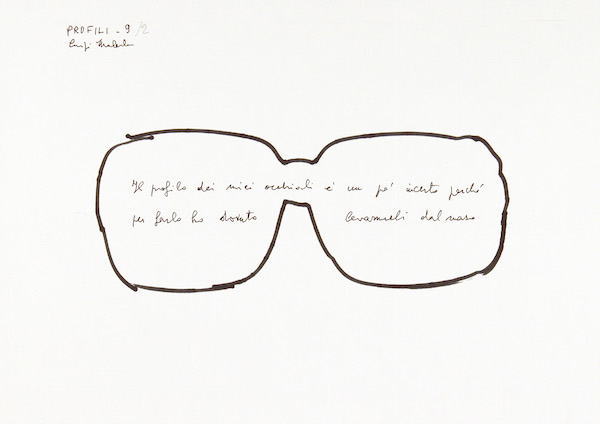 PROFILI - 9 /2
Luigi Malerba
Il profilo dei miei occhiali è un po' incerto perché
per farlo ho dovuto levarmeli dal naso